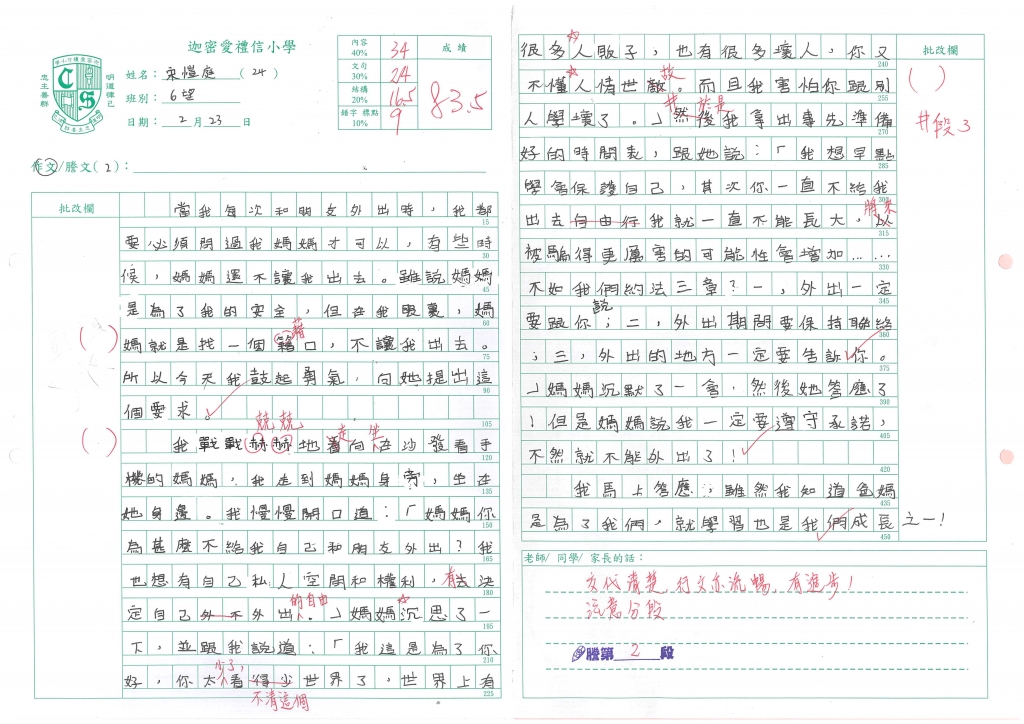 迦密愛禮信小學
明道律己
忠主善群
C S
姓名：宋愷庭（24）
班別：6望
日期：2月23日
內容 40% 34
文句 30% 24
結構 20% 16.5
錯字 標點 10% 9
成績
83.5
作文/謄文(2)：
批改欄
當我每次和朋友外出時，我都
15
要必須問過我媽媽才可以，有些時
30
候，媽媽還不讓我出去。雖說媽媽
45
是為了我的安全，但在我眼裏，媽
60
( )
媽就是找一個藉口，不讓我出去。
藉
75
所以今天我鼓起勇氣，向她提出這
90
個要求。
105
兢兢 走 坐
( )
我戰戰赫赫地看向在沙發看手
120
機的媽媽，我走到媽媽身旁，坐在
135
她身邊。我慢慢開口道：「媽媽你
150
為甚麼不給我自己和朋友外出？我
165
也想有自己私人空間和權利，有去決
180
定自己外不外出。」媽媽沉思了一
的自由
195
下，並跟我說道：「我這是為了你
210
好，你太看得少世界了，世界上有
少了，
不清這個
225
批改欄
很多人販子，也有很多壞人，你又
240
( )
不懂人情世故。而且我害怕你跟別
故
255
人學壞了。」然後我拿出事先準備
井 於是
270
井段3
好的時間表，跟她說：「我想早點
285
學會保護自己，其次你一直不給我
300
出去自由行我就一直不能長大，以
將來
315
被騙得更厲害的可能性會增加……
330
不如我們約法三章？一，外出一定
345
要跟你說；二，外出期間要保持聯絡
360
；三，外出的地方一定要告訴你。
375
」媽媽沉默了一會，然後她答應了
390
！但是媽媽說我一定要遵守承諾，
405
不然就不能外出了！
420
我馬上答應，雖然我知道爸媽
435
是為了我們，就學習也是我們成長之一！
450
老師/ 同學/ 家長的話：
交代清楚，行文亦流暢，有進步！
注意分段
謄第 2 段